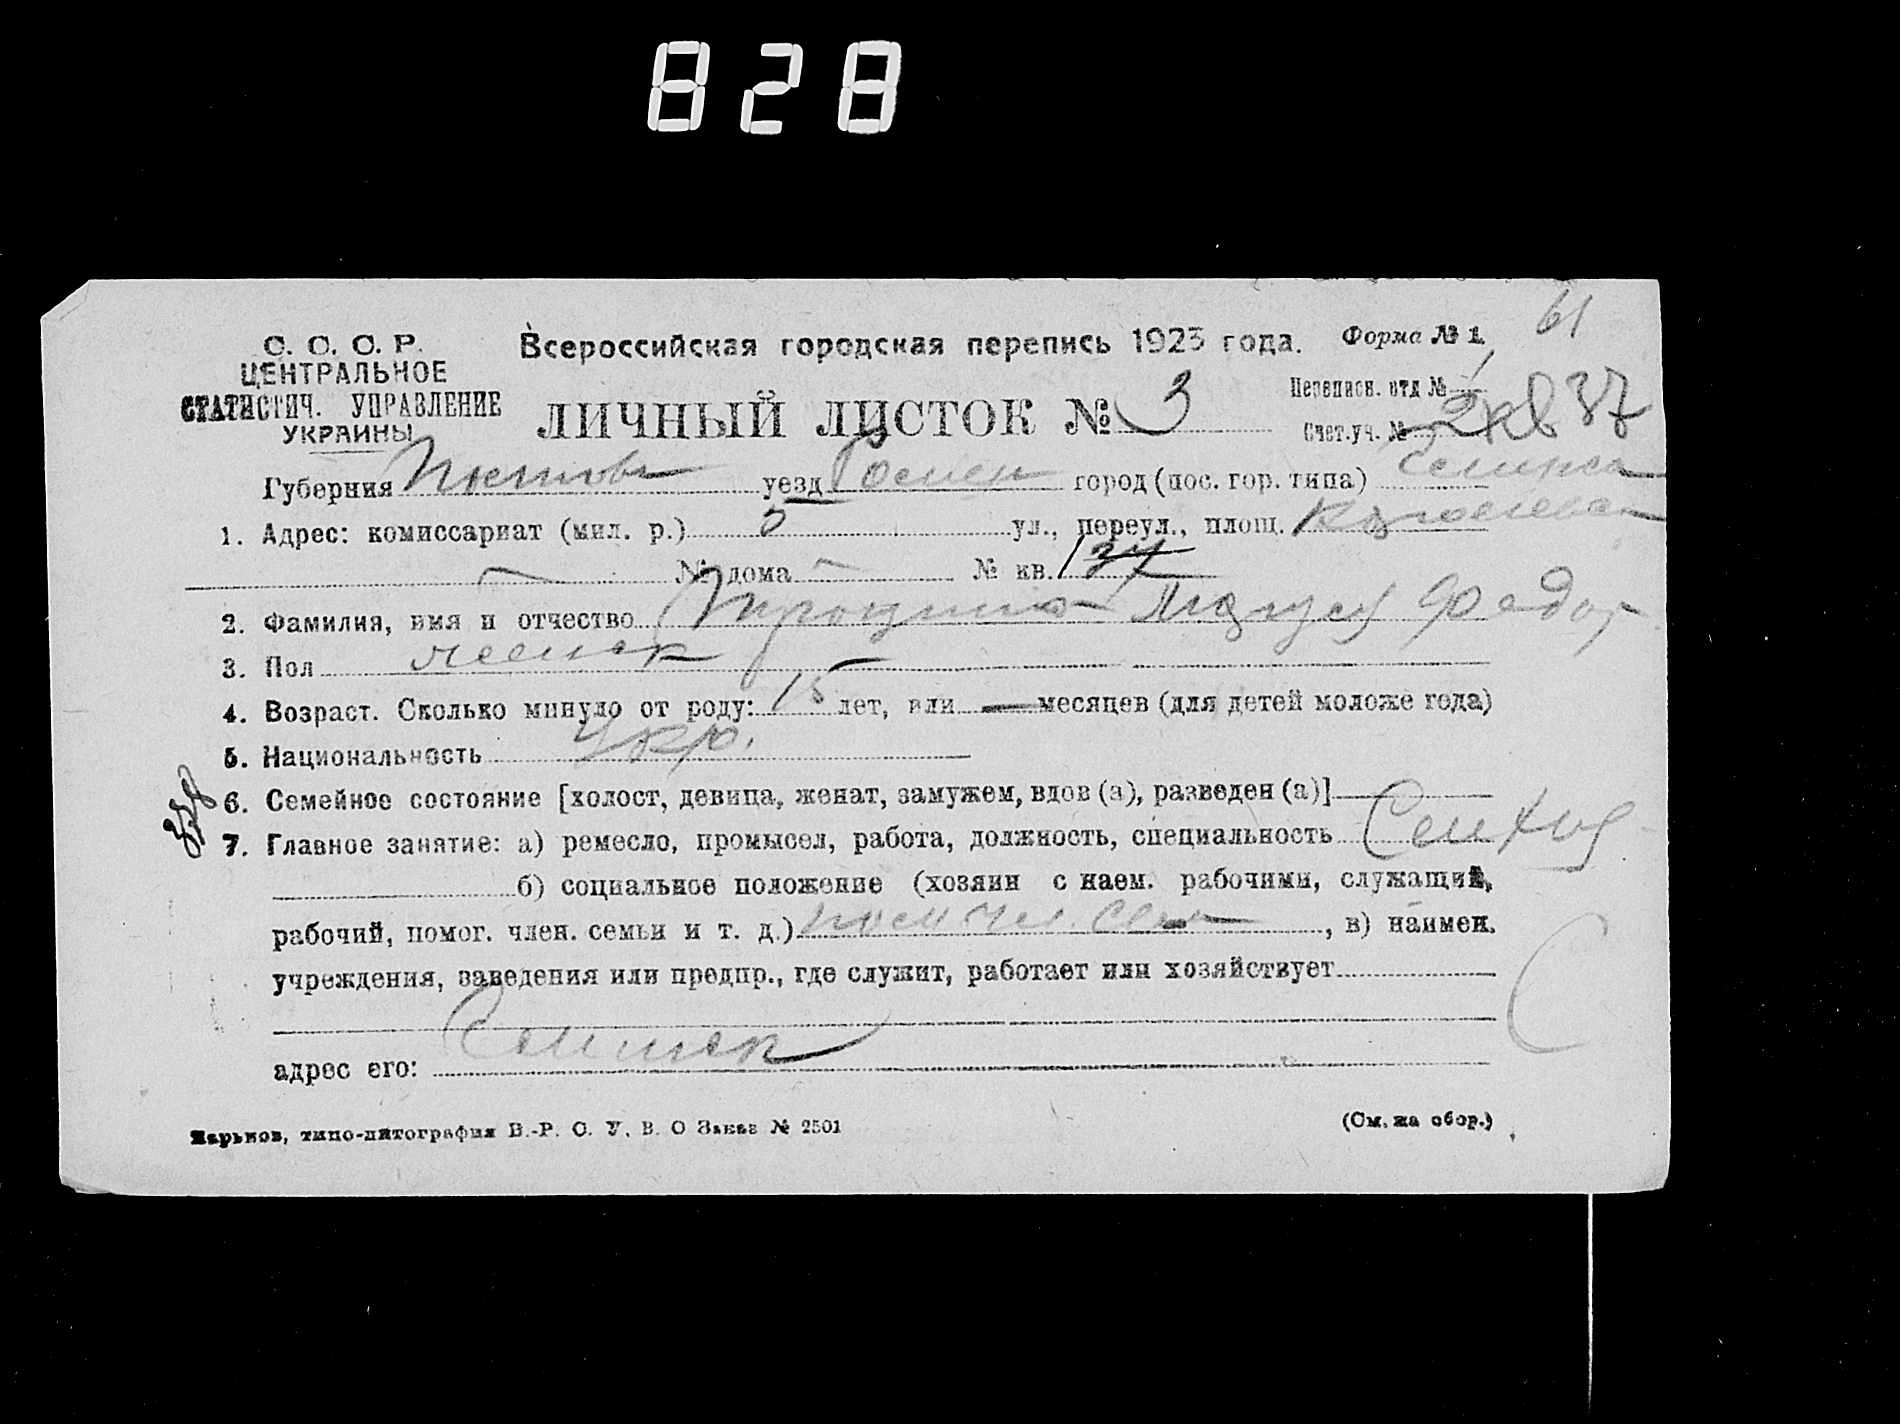 828
61
С. С. С. Р.
ЦЕНТРАЛЬНОЕ
СТАТИСТИЧ. УПРАВЛЕНИЕ
УКРАИНЫ
Всероссийская городская перепись 1923 года. Форма № 1.
ЛИЧНЫЙ ЛИСТОК № 3
Перепиен. отд №
Счет.уч. № 37
Губерния уезд Ромен город (пос. гор. типа)
1. Адрес: комиссариат (мил. р.) ул., переул., площ.
№ дома — № кв.
2. Фамилия, имя и отчество Федор
3. Пол женск
4. Возраст. Сколько минуло от роду: 15 лет, или — месяцев (для детей моложе года)
5. Национальность Укр.
6. Семейное состояние [холост, девица, женат, замужем, вдов (а), разведен (а)]
7. Главное занятие: а) ремесло, промысел, работа, должность, специальность Сел хоз
б) социальное положение (хозяин с наем. рабочими, служащий,
рабочий, помог. член. семьи и т. д.) пом чл. сем , в) наимен.
учреждения, заведения или предпр., где служит, работает или хозяйствует
адрес его:
Харьков, типо-литография В.-Р. С. У. В. О Заказ № 2501
(См. на обор.)